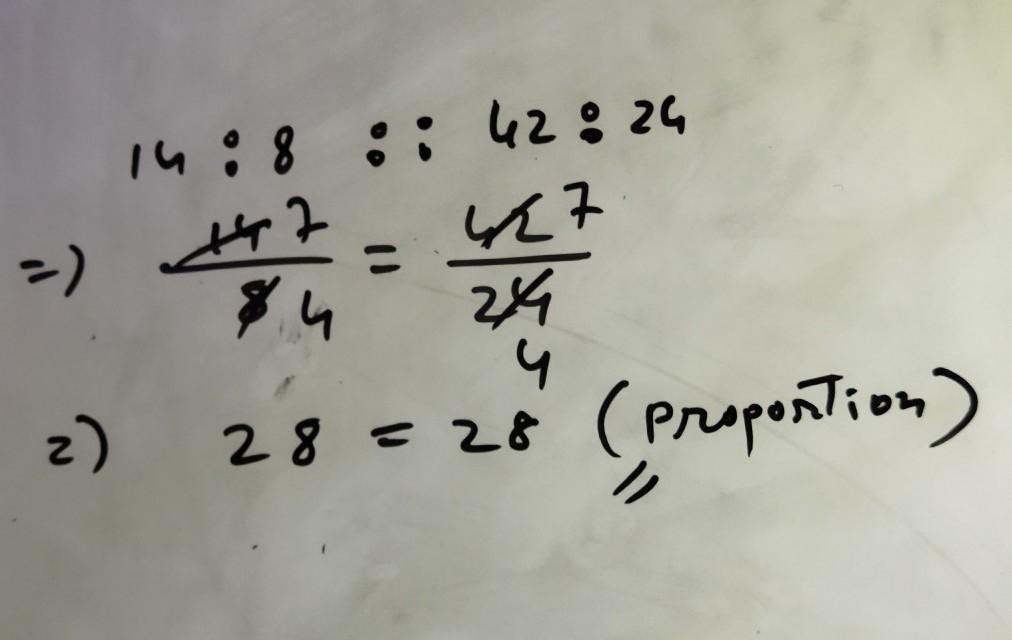 14 : 8 :: 42 : 24
=) 14 7 / 8 4 = 42 7 / 24 4
=) 28 = 28 (proportion)